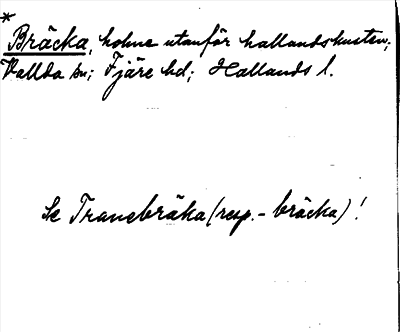 *
Bräcka, holme utanför hallandskusten;
Vallda sn; Fjäre hd; Hallands l.
Se Tranebräka (resp. - bräcka)!